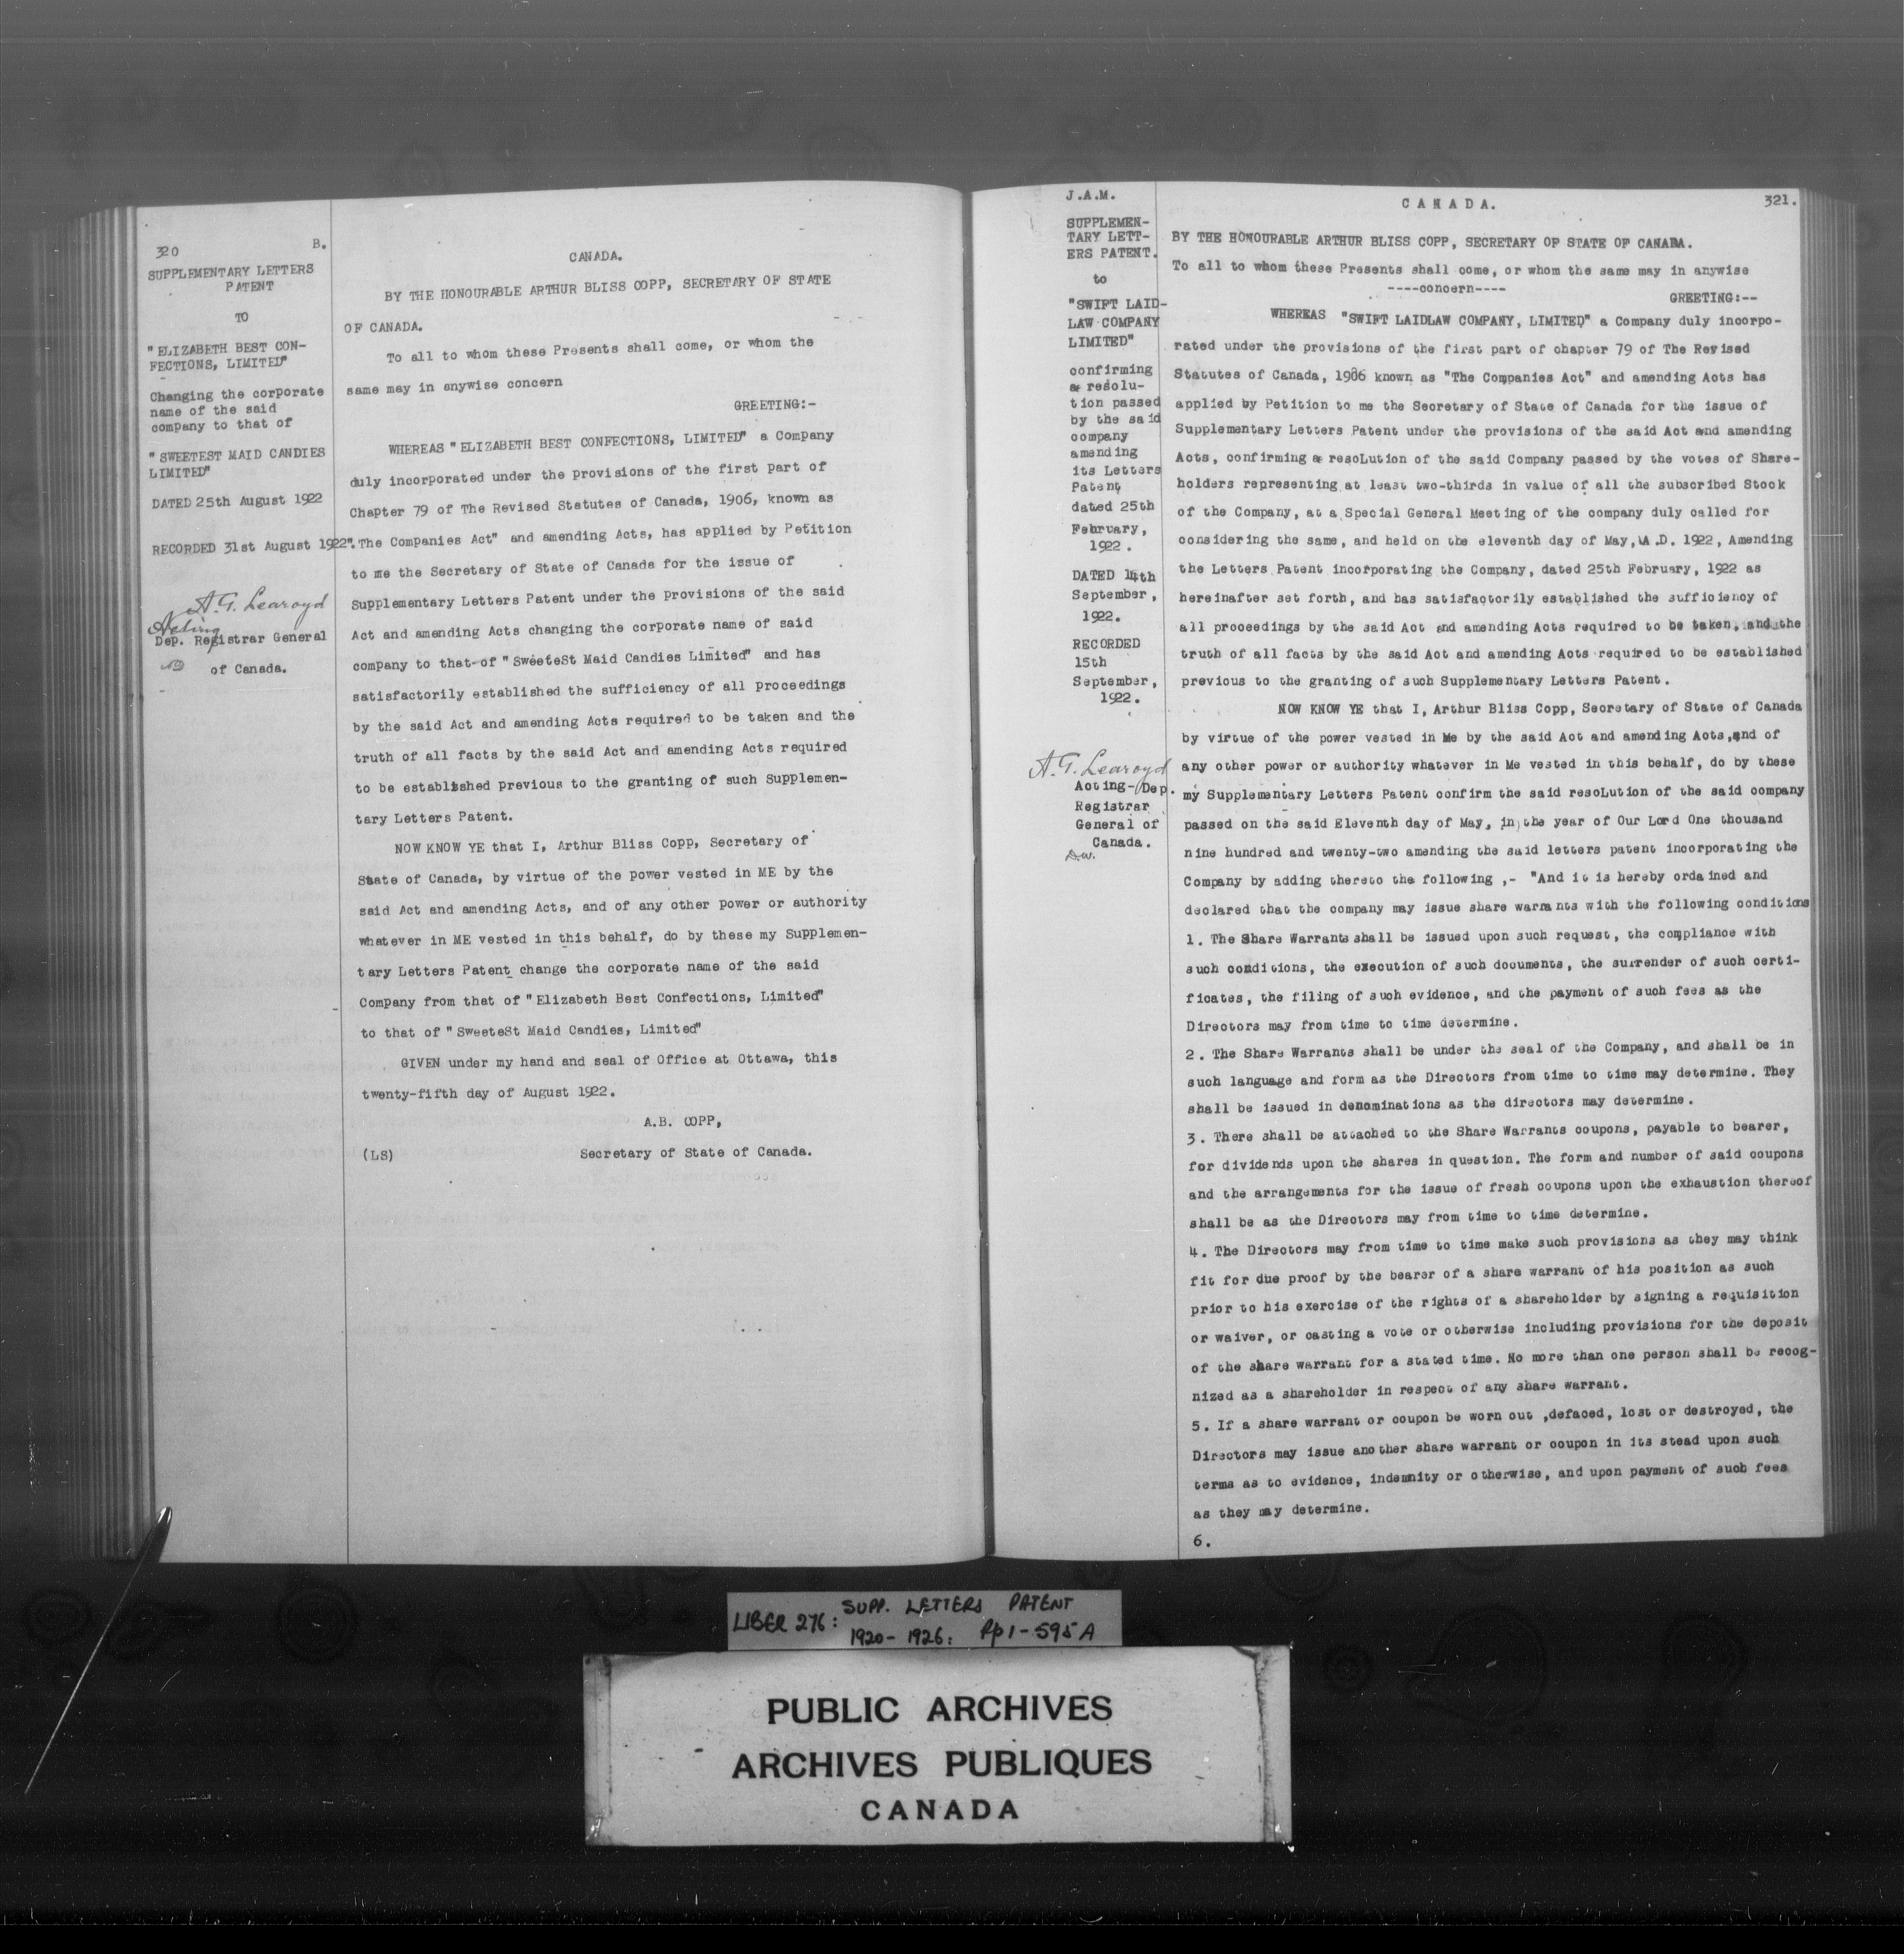 320
B.
SUPPLEMENTARY LETTERS
PATENT
TO
"ELIZABETH BEST CON-
FECTIONS, LIMITED"
Changing the corporate
name of the said
company to that of
"SWEETEST MAID CANDIES
LIMITED"
DATED 25th August 1922
RECORDED 31st August 1922.
A. G. Learoyd
Acting
Dep. Registrar General
of Canada.
CANADA.
BY THE HONOURABLE ARTHUR BLISS COPP, SECRETARY OF STATE
OF CANADA.
To all to whom these Presents shall come, or whom the
same may in anywise concern
GREETING:-
WHEREAS "ELIZABETH BEST CONFECTIONS, LIMITED" a Company
duly incorporated under the provisions of the first part of
Chapter 79 of The Revised Statutes of Canada, 1906, known as
"The Companies Act" and amending Acts, has applied by Petition
to me the Secretary of State of Canada for the issue of
Supplementary Letters Patent under the provisions of the said
Act and amending Acts changing the corporate name of said
company to that of "SweeteSt Maid Candies Limited" and has
satisfactorily established the sufficiency of all proceedings
by the said Act and amending Acts required to be taken and the
truth of all facts by the said Act and amending Acts required
to be established previous to the granting of such Supplemen-
tary Letters Patent.
NOW KNOW YE that I, Arthur Bliss Copp, Secretary of
State of Canada, by virtue of the power vested in ME by the
said Act and amending Acts, and of any other power or authority
whatever in ME vested in this behalf, do by these my Supplemen-
tary Letters Patent change the corporate name of the said
Company from that of "Elizabeth Best Confections, Limited"
to that of "SweeteSt Maid Candies, Limited"
GIVEN under my hand and seal of Office at Ottawa, this
twenty-fifth day of August 1922.
A.B. COPP,
(LS) Secretary of State of Canada.
J.A.M.
SUPPLEMEN-
TARY LETT-
ERS PATENT.
to
"SWIFT LAID-
LAW COMPANY
LIMITED"
confirming
a resolu-
tion passed
by the said
company
amending
its Letters
Patent
dated 25th
February,
1922.
DATED 14th
September,
1922.
RECORDED
15th
September,
1922.
A. G. Learoyd
Acting-Dep.
Registrar
General of
Canada.
CANADA.
321.
BY THE HONOURABLE ARTHUR BLISS COPP, SECRETARY OF STATE OF CANADA.
To all to whom these Presents shall come, or whom the same may in anywise
----concern----
GREETING:--
WHEREAS "SWIFT LAIDLAW COMPANY, LIMITED" a Company duly incorpo-
rated under the provisions of the first part of chapter 79 of The Revised
Statutes of Canada, 1906 known as "The Companies Act" and amending Acts has
applied by Petition to me the Secretary of State of Canada for the issue of
Supplementary Letters Patent under the provisions of the said Act and amending
Acts, confirming a resoLution of the said Company passed by the votes of Share-
holders representing at least two-thirds in value of all the subscribed Stock
of the Company, at a Special General Meeting of the company duly called for
considering the same, and held on the eleventh day of May, A.D. 1922, Amending
the Letters Patent incorporating the Company, dated 25th February, 1922 as
hereinafter set forth, and has satisfactorily established the sufficiency of
all proceedings by the said Act and amending Acts required to be taken, and the
truth of all facts by the said Act and amending Acts required to be established
previous to the granting of such Supplementary Letters Patent.
NOW KNOW YE that I, Arthur Bliss Copp, Secretary of State of Canada
by virtue of the power vested in Me by the said Act and amending Acts, and of
any other power or authority whatever in Me vested in this behalf, do by these
my Supplementary Letters Patent confirm the said resoLution of the said company
passed on the said Eleventh day of May, in the year of Our Lord One thousand
nine hundred and twenty-two amending the said letters patent incorporating the
Company by adding thereto the following ,- "And it is hereby ordained and
declared that the company may issue share warrants with the following conditions
1. The Share Warrants shall be issued upon such request, the compliance with
such conditions, the execution of such documents, the surrender of such certi-
ficates, the filing of such evidence, and the payment of such fees as the
Directors may from time to time determine.
2. The Share Warrants shall be under the seal of the Company, and shall be in
such language and form as the Directors from time to time may determine. They
shall be issued in denominations as the directors may determine.
3. There shall be attached to the Share Warrants coupons, payable to bearer,
for dividends upon the shares in question. The form and number of said coupons
and the arrangements for the issue of fresh coupons upon the exhaustion thereof
shall be as the Directors may from time to time determine.
4. The Directors may from time to time make such provisions as they may think
fit for due proof by the bearer of a share warrant of his position as such
prior to his exercise of the rights of a shareholder by signing a requisition
or waiver, or casting a vote or otherwise including provisions for the deposit
of the share warrant for a stated time. No more than one person shall be recog-
nized as a shareholder in respect of any share warrant.
5. If a share warrant or coupon be worn out ,defaced, lost or destroyed, the
Directors may issue another share warrant or coupon in its stead upon such
terms as to evidence, indemnity or otherwise, and upon payment of such fees
as they may determine.
6.
LIBER 276: SUPP. LETTERS PATENT
1920-1926: Pp 1-595A
PUBLIC ARCHIVES
ARCHIVES PUBLIQUES
CANADA